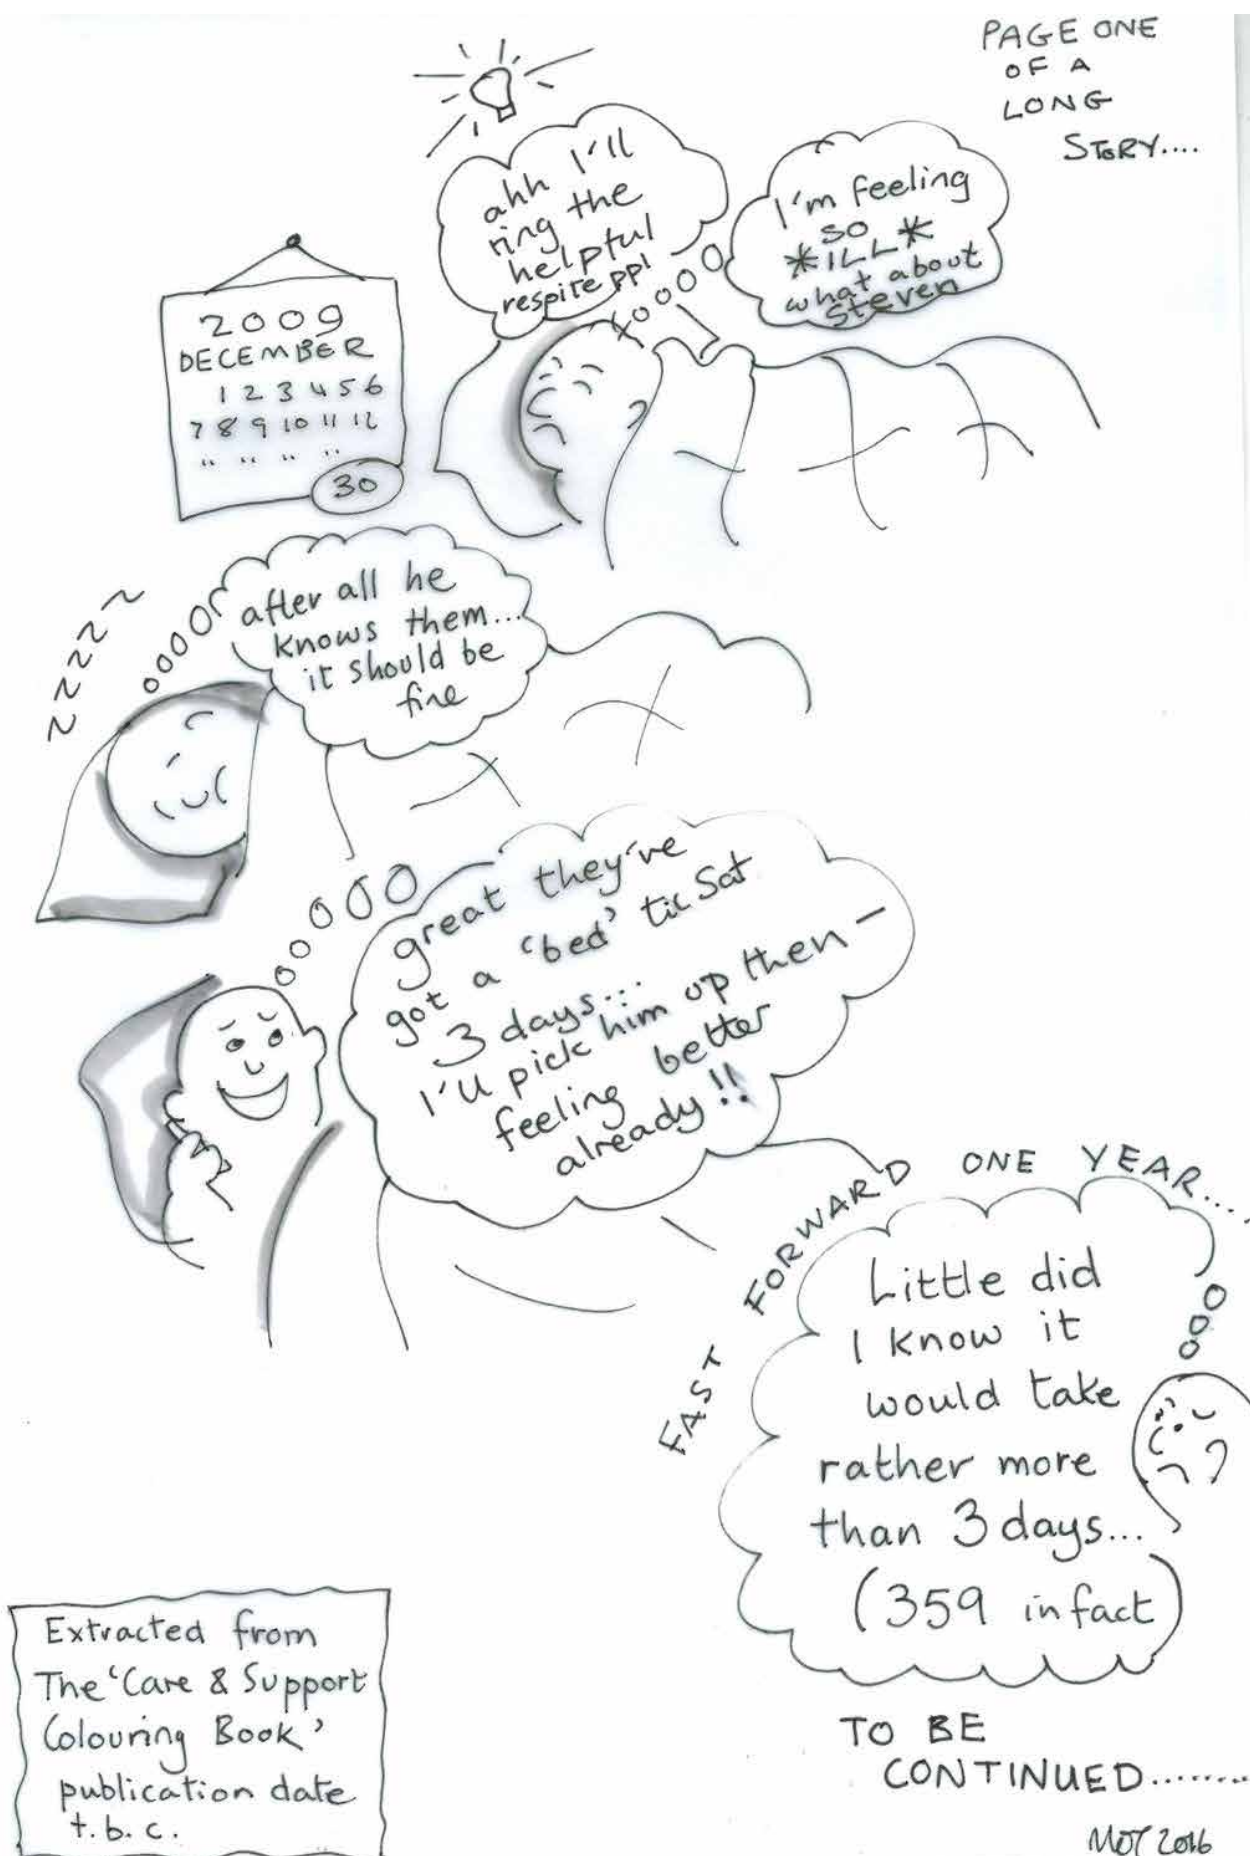 PAGE ONE
OF A
LONG
STORY....
ahh I'll
ring the
helpful
respite ppl
I'm feeling
SO
*ILL*
what about
Steven
2009
DECEMBER
1 2 3 4 5 6
7 8 9 10 11 12
" " " "
30
zzzzz
after all he
knows them...
it should be
fine
great they've
got a 'bed' til Sat
3 days...
I'll pick him up then -
feeling better
already!!
FAST FORWARD ONE YEAR....
Little did
I know it
would take
rather more
than 3 days...
(359 in fact)
TO BE
CONTINUED.........
2016
Extracted from
The 'Care & Support
Colouring Book'
publication date
t.b.c.